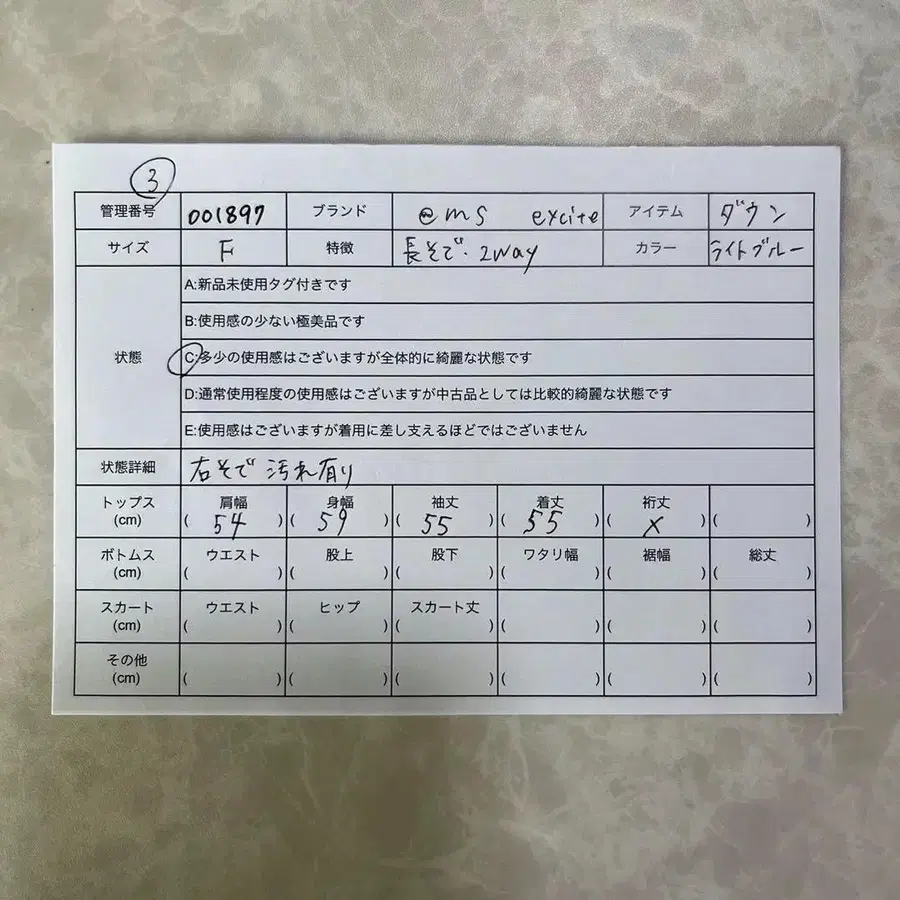 ③
管理番号 001897 ブランド @ms excite アイテム ダウン
サイズ F 特徴 長そで・2way カラー ライトブルー
状態
A:新品未使用タグ付きです
B:使用感の少ない極美品です
C:多少の使用感はございますが全体的に綺麗な状態です
D:通常使用程度の使用感はございますが中古品としては比較的綺麗な状態です
E:使用感はございますが着用に差し支えるほどではございません
状態詳細 右そで 汚れ有り
トップス 肩幅 身幅 袖丈 着丈 裄丈
(cm) ( 54 ) ( 59 ) ( 55 ) ( 55 ) ( x ) ( )
ボトムス ウエスト 股上 股下 ワタリ幅 裾幅 総丈
(cm) ( ) ( ) ( ) ( ) ( ) ( )
スカート ウエスト ヒップ スカート丈
(cm) ( ) ( ) ( ) ( ) ( ) ( )
その他
(cm) ( ) ( ) ( ) ( ) ( ) ( )